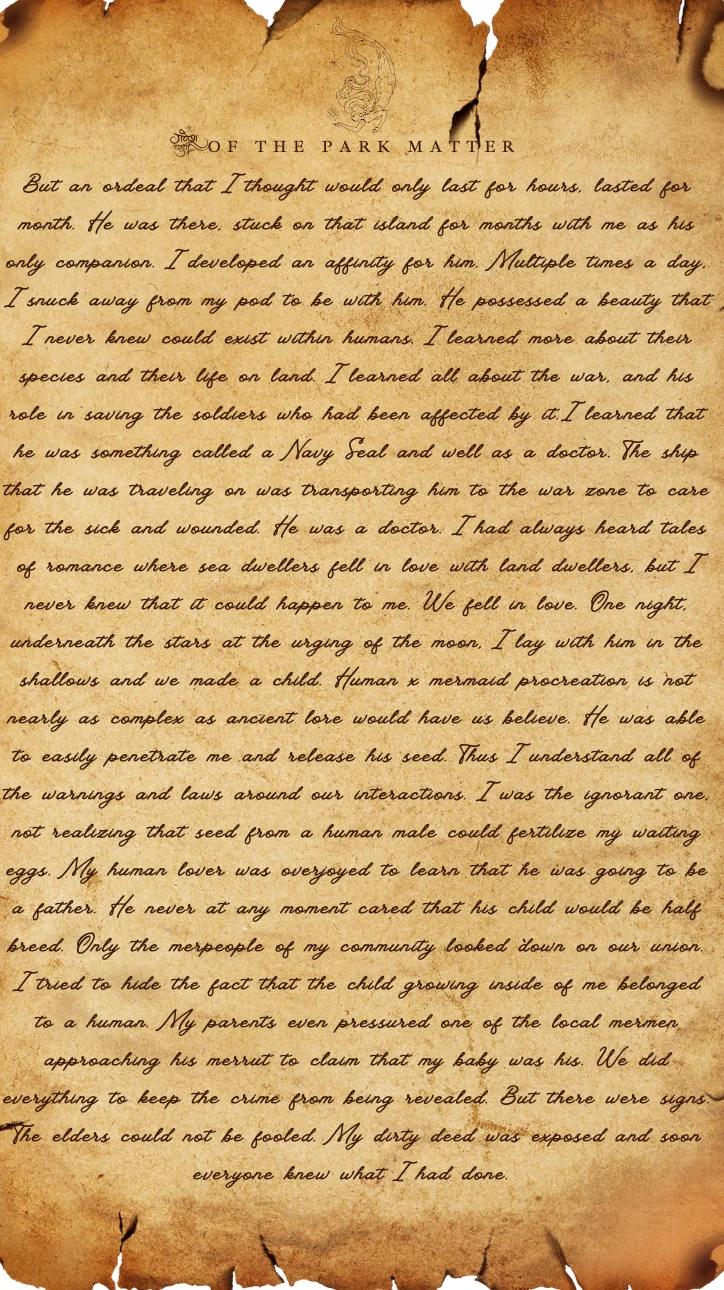 OF THE PARK MATTER
But an ordeal that I thought would only last for hours, lasted for
month. He was there, stuck on that island for months with me as his
only companion. I developed an affinity for him. Multiple times a day,
I snuck away from my pod to be with him. He possessed a beauty that
I never knew could exist within humans. I learned more about their
species and their life on land. I learned all about the war, and his
role in saving the soldiers who had been affected by it.I learned that
he was something called a Navy Seal and well as a doctor. The ship
that he was traveling on was transporting him to the war zone to care
for the sick and wounded. He was a doctor. I had always heard tales
of romance where sea dwellers fell in love with land dwellers, but I
never knew that it could happen to me. We fell in love. One night,
underneath the stars at the urging of the moon, I lay with him in the
shallows and we made a child. Human x mermaid procreation is not
nearly as complex as ancient lore would have us believe. He was able
to easily penetrate me and release his seed. Thus I understand all of
the warnings and laws around our interactions. I was the ignorant one,
not realizing that seed from a human male could fertilize my waiting
eggs. My human lover was overjoyed to learn that he was going to be
a father. He never at any moment cared that his child would be half
breed. Only the merpeople of my community looked down on our union.
I tried to hide the fact that the child growing inside of me belonged
to a human. My parents even pressured one of the local mermen
approaching his merrut to claim that my baby was his. We did
everything to keep the crime from being revealed. But there were signs.
The elders could not be fooled. My dirty deed was exposed and soon
everyone knew what I had done.